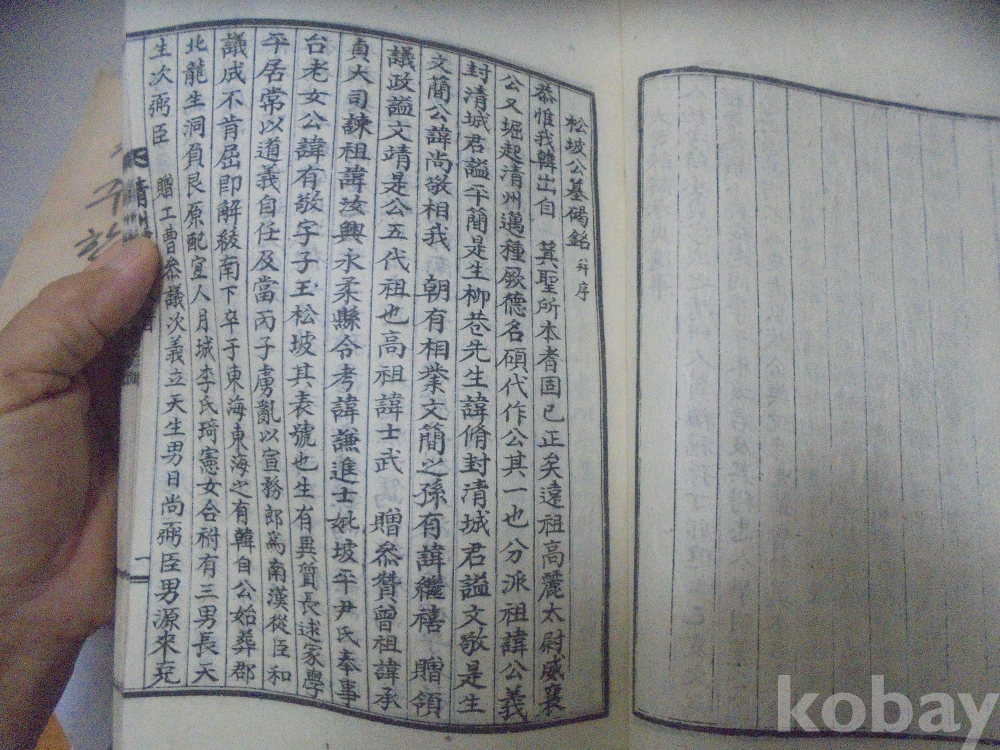 松坡公墓碣銘 幷序
恭惟我韓出自 箕聖所本者固已正矣遠祖高麗太尉威襄
公又堀起清州邁種厥德名碩代作公其一也分派祖諱公義
封清城君謚平簡是生柳巷先生諱脩封清城君謚文敬是生
文簡公諱尚敬相我 朝有相業文簡之孫有諱繼禧 贈領
議政謚文靖是公五代祖也高祖諱士武 贈叅贊曾祖諱承
貞大司諫祖諱汝興永柔縣令考諱謙進士妣坡平尹氏奉事
台老女公諱有敬字子玉松坡其表號也生有異質長逑家學
平居常以道義自任及當丙子虜亂以宣務郎爲南漢從臣和
議成不肯屈即解綾南下卒于東海東海之有韓自公始葬郡
北龍生洞負艮原配宜人月城李氏琦憲女合祔有三男長天
生次弼臣 贈工曹叅議次義立天生男日尚弼臣男源來克
一
주
kobay